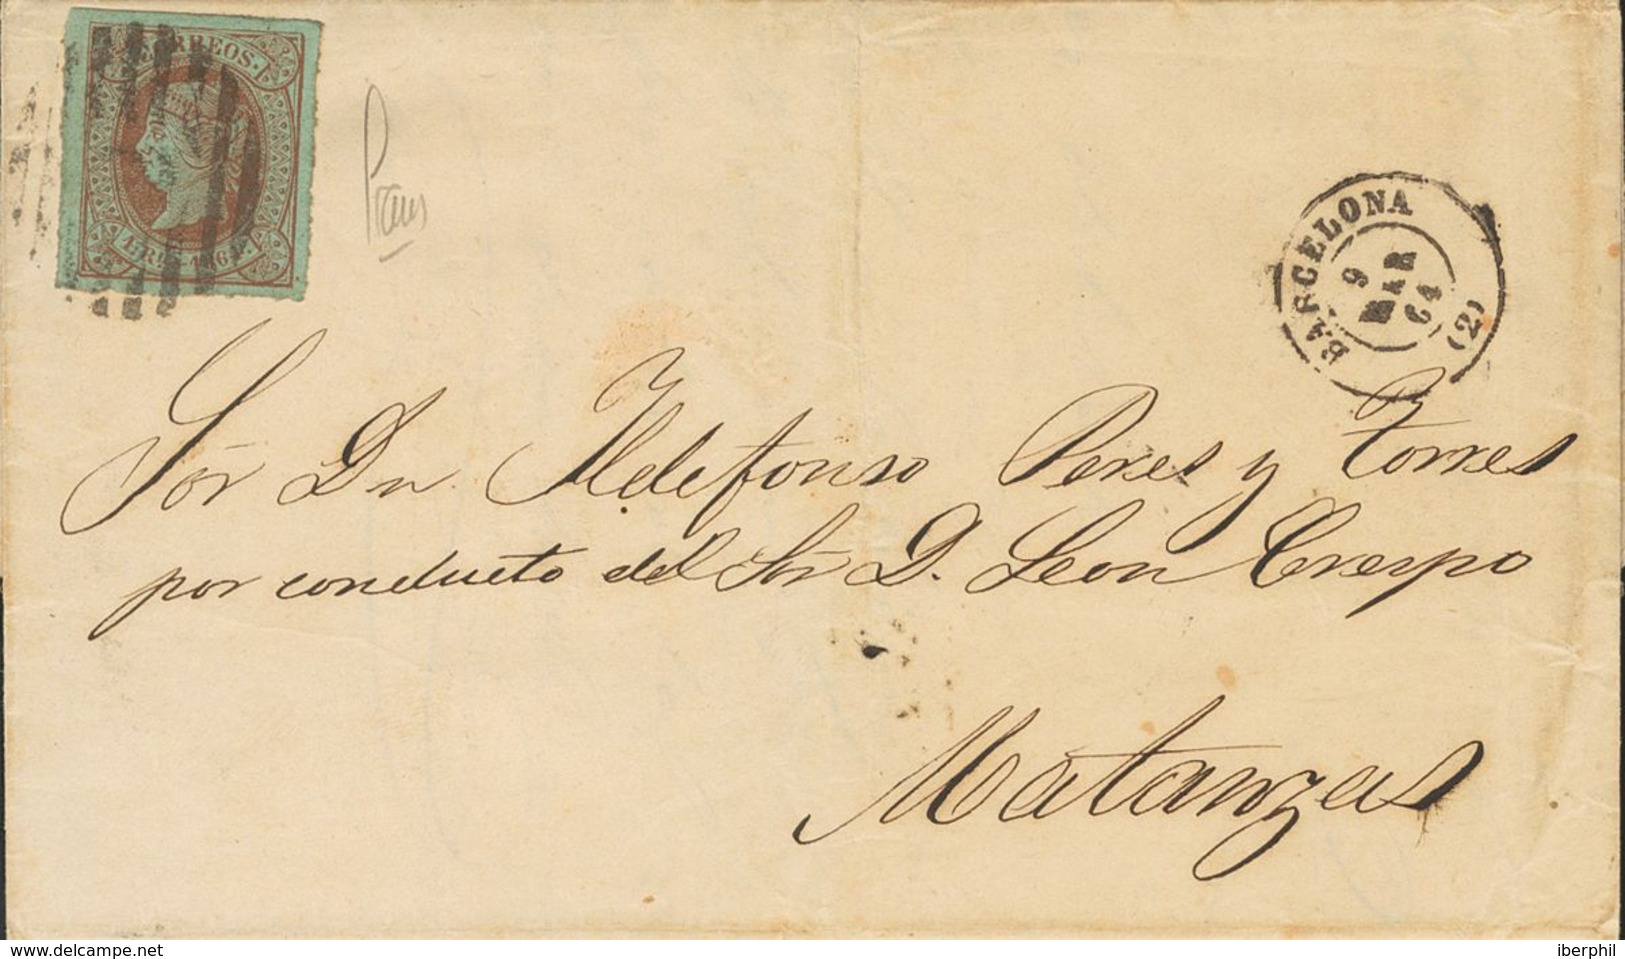 CORREOS.
1 Rl. 1864.
BARCELONA
9
MAR
64
(2)
Sór Dn Ildefonso Peres y Torres
por conducto del Sór D. Leon Crespo
Matanzas
www.delcampe.net
iberphil